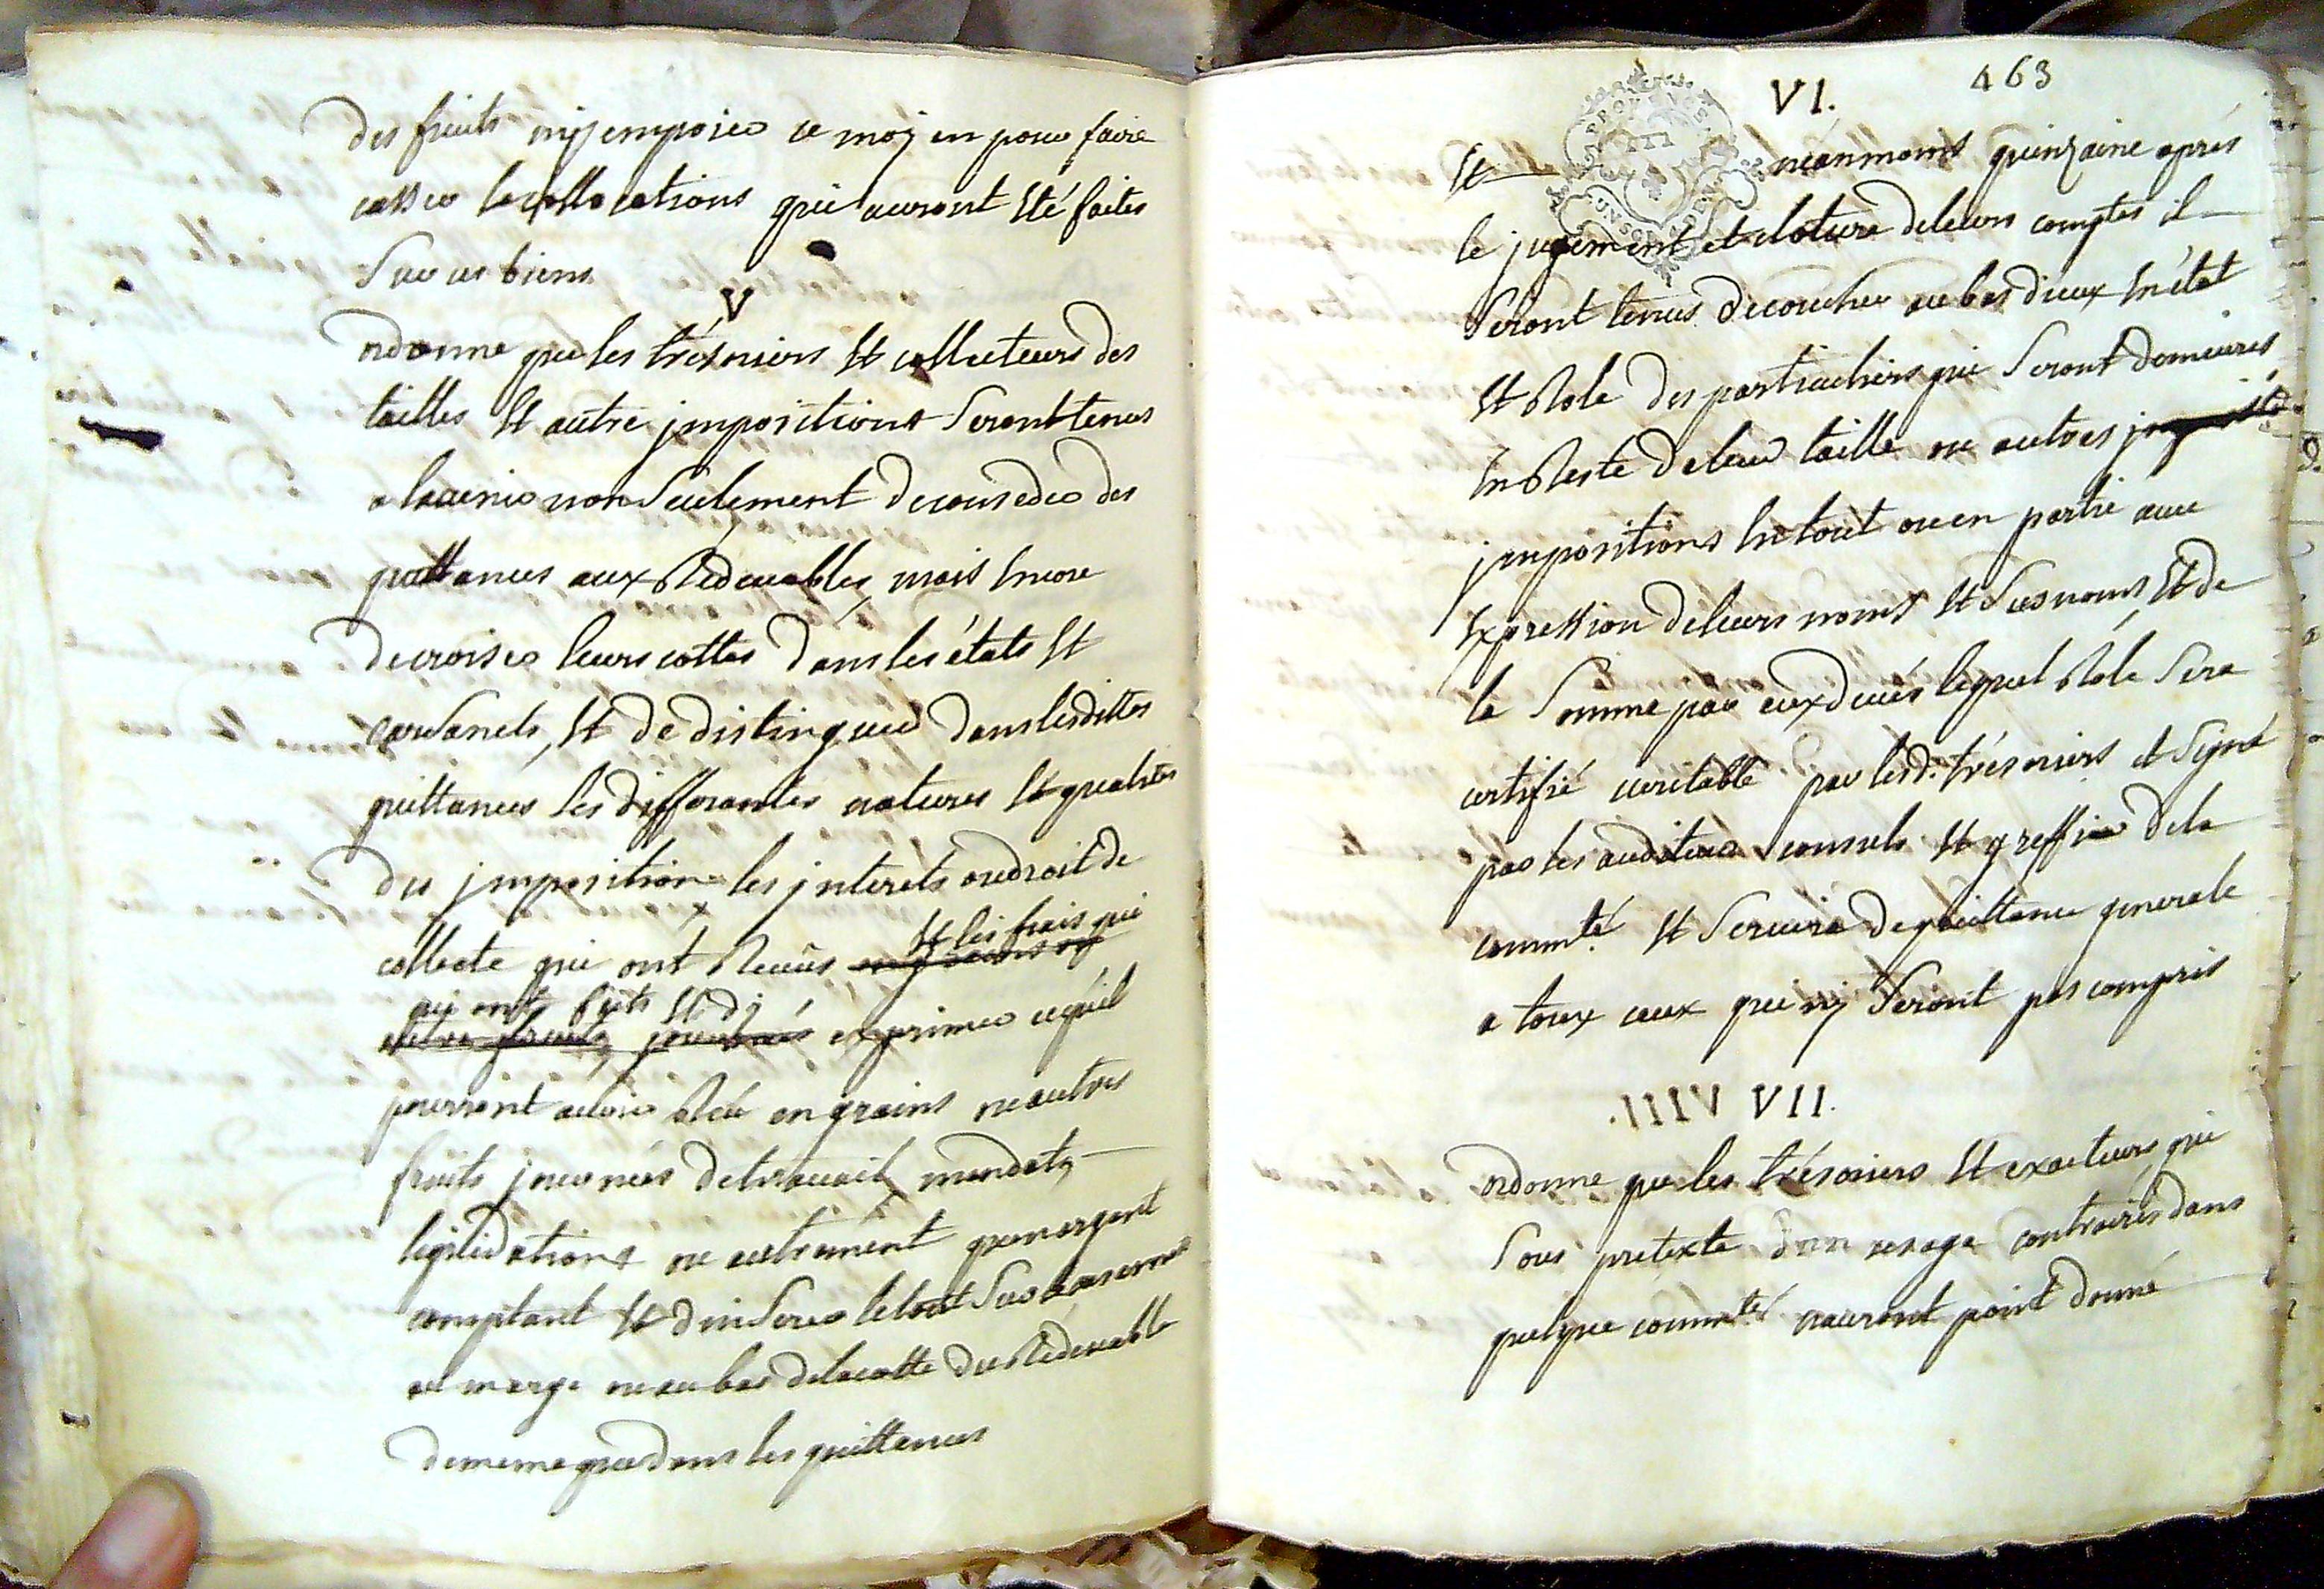 des fruits ny emploier ce moÿ en pour faire
casser les collocations qui auront été faites
Sur ces biens
V
ordonne que les trésoriers Et collecteurs des
tailles Et autre jmpositions Seront tenus
alavenir non Seulement deconceder des
quittances aux Redevables, mais Encore
decroiser leurs cottes dans les états Et
Et de distinguer dans lesdittes
quittances les differantes natures Et qualites
du jmposition les jnterets oudroit de
Et les frais qui
collecte qui ont Recûs
qui ont faits Et d'j
exprimer cequil
pourront avoir Reçu en grains ouautres
fruits journées detravail, mandats,
liquidations ou autrement quenargent
comptant Et dinserer letout Sur
en marge ouaubas delacotte du Redevable
dememe que dans les quittances
463
VI.
Et néanmoins quinzaine aprés
le jugement et cloture deleurs comptes il
Seront tenus decoucher au bas diceux Enétat
Et Role des particuliers qui Seront demeurés
En Reste deleur taille ou autres
jmpositions En tout ou en partie avec
Expression deleurs noms Et Surnoms, Et de
la Somme par eux düés lequel Role Sera
certifié veritable par lesd. trésoriers et Signé
par les auditeurs consuls Et greffier dela
commté Et Servira dequittance generale
a toux ceux qui ny Seront pas compris
VII.
ordonne que les trésoriers Et exacteurs, qui
Sous pretexte d'un usage contraire dans
quelque commté nauront point donné